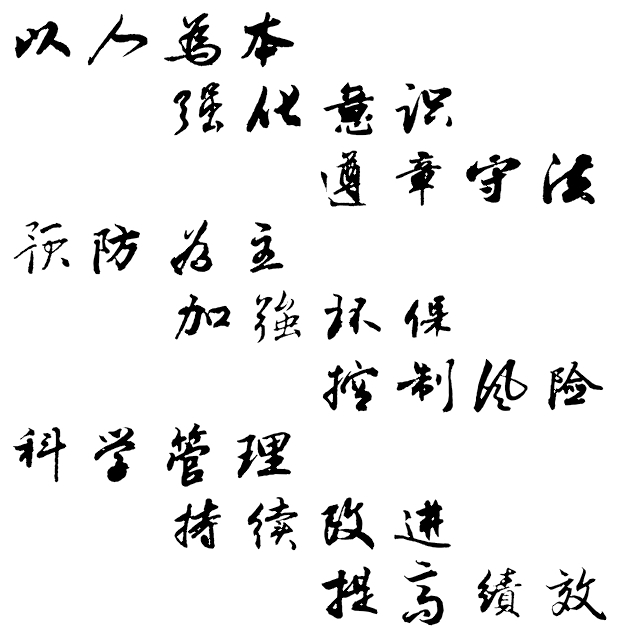 以人為本
强化意识
遵章守法
预防为主
加強环保
控制风险
科学管理
持续改进
提高績效